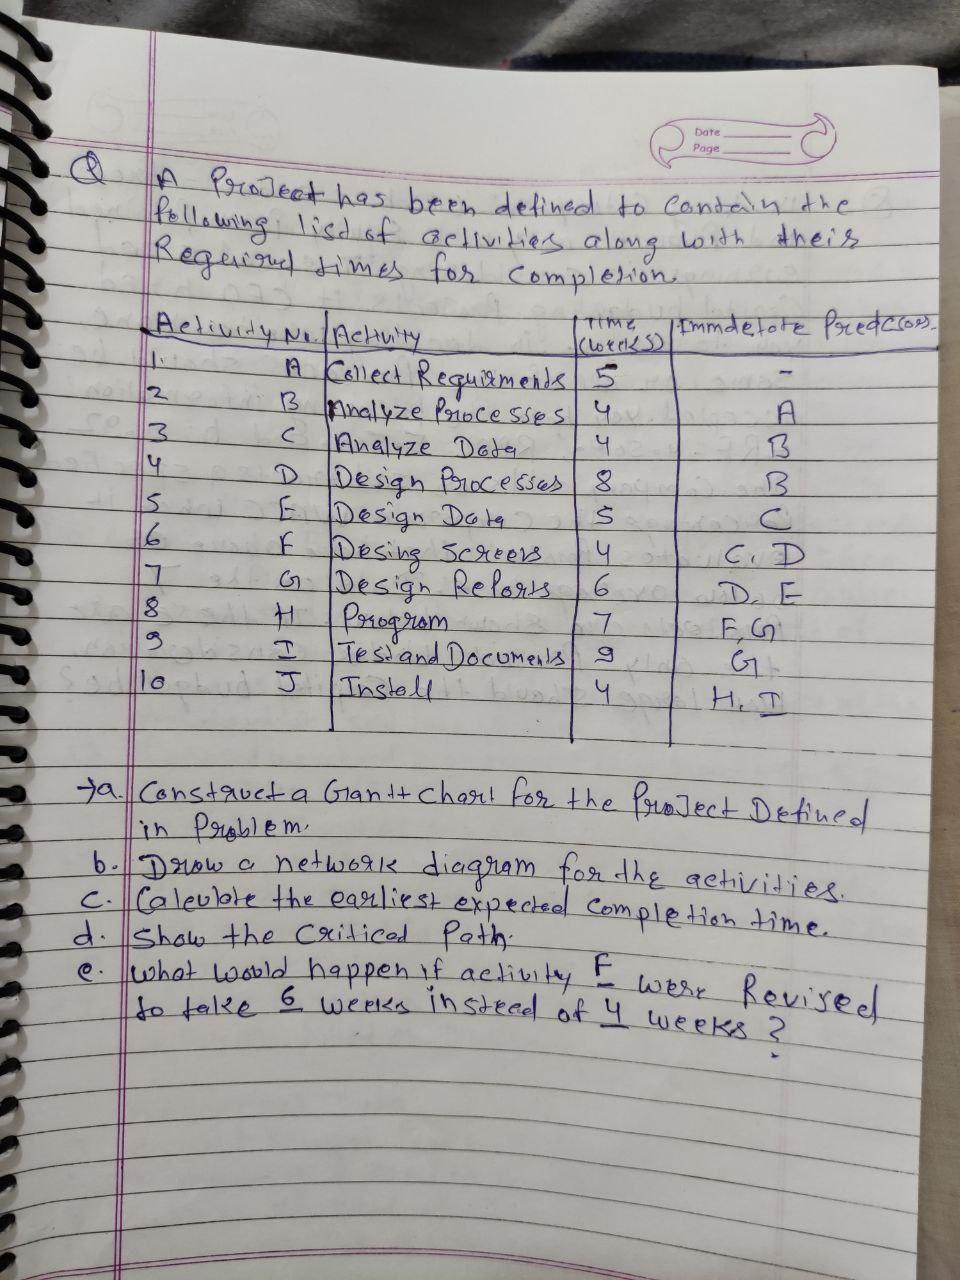 Date
Page
Q A Project has been defined to contain the
following list of activities along with their
Required times for completion.
Activity No. Activity Time (weeks) Immdetate Predcesor.
1. A Collect Requirments 5 -
2 B Analyze Processes 4 A
3 C Analyze Data 4 B
4 D Design Processes 8 B
5 E Design Data 5 C
6 F Desing Screens 4 C, D
7 G Design Reports 6 D, E
8 H Program 7 F, G
9 I Test and Documents 9 G
10 J Install 4 H, I
→a. Construct a Gantt chart for the Project Defined
in Problem.
b. Draw a network diagram for the activities.
c. Calculate the earliest expected completion time.
d. Show the Critical Path.
e. What would happen if activity F were Revised
to take 6 weeks instead of 4 weeks ?